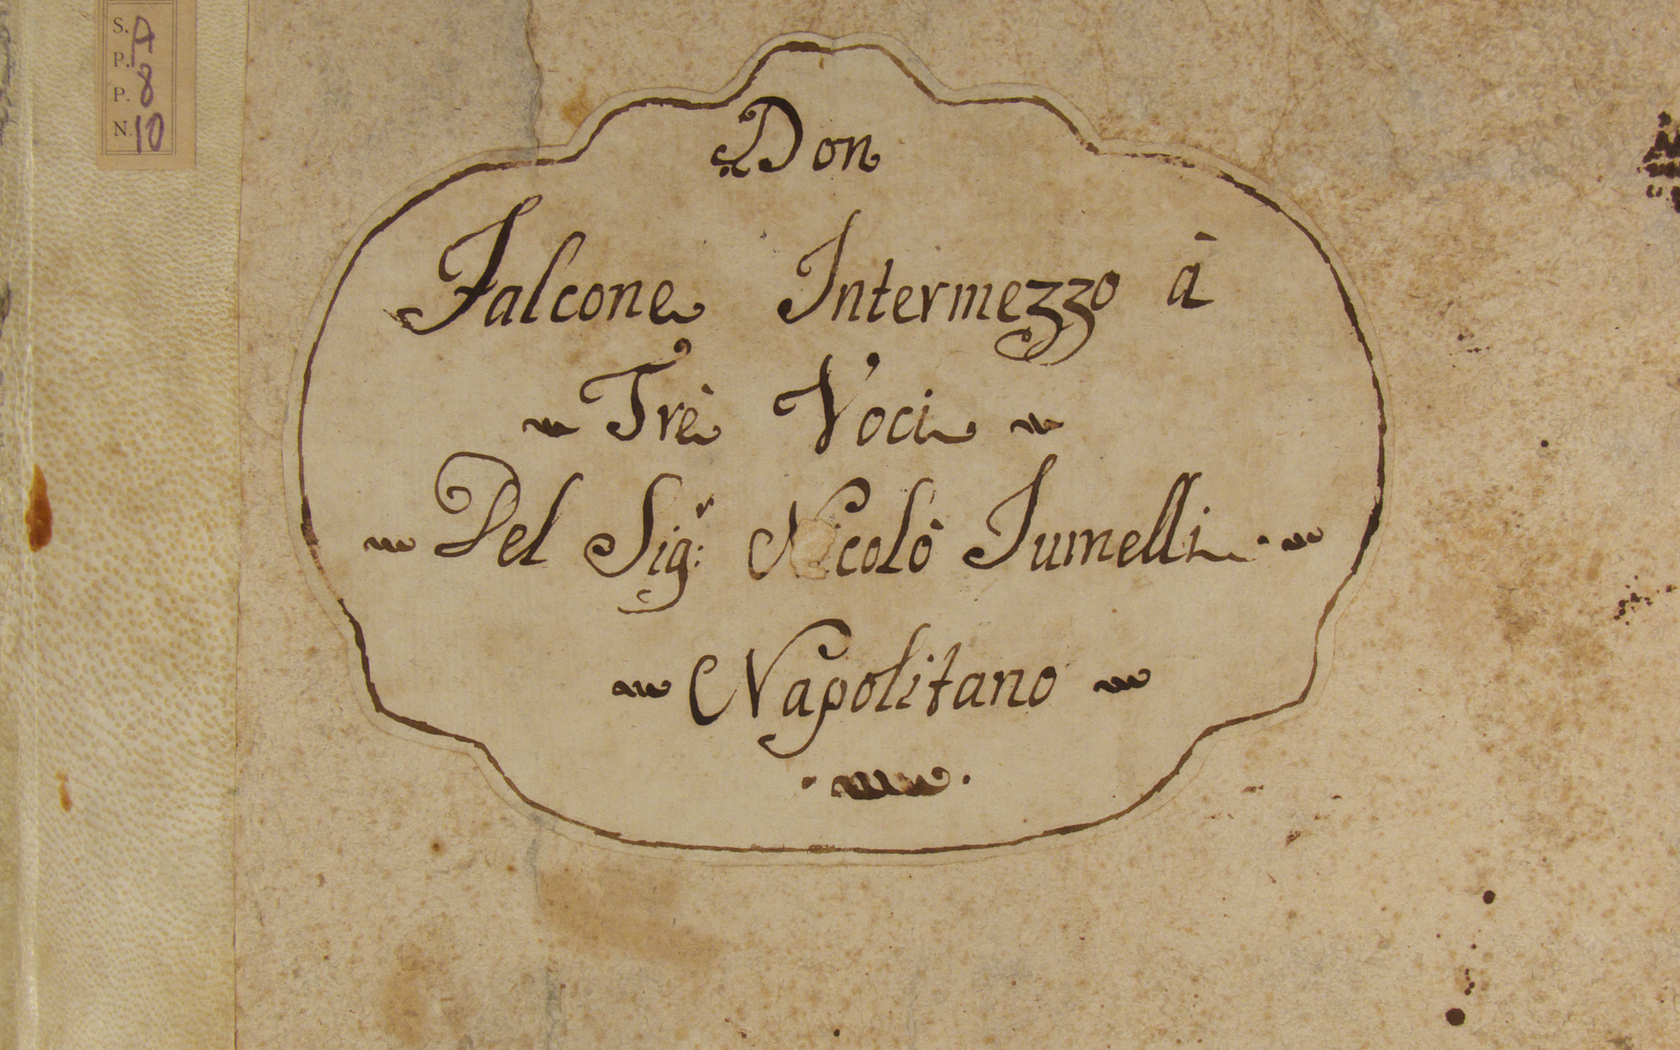 S. A
P.
P. 8
N. 10
Don
Falcone Intermezzo à
Trè Voci
Del Sig.r Nicolò Jumelli
Napolitano